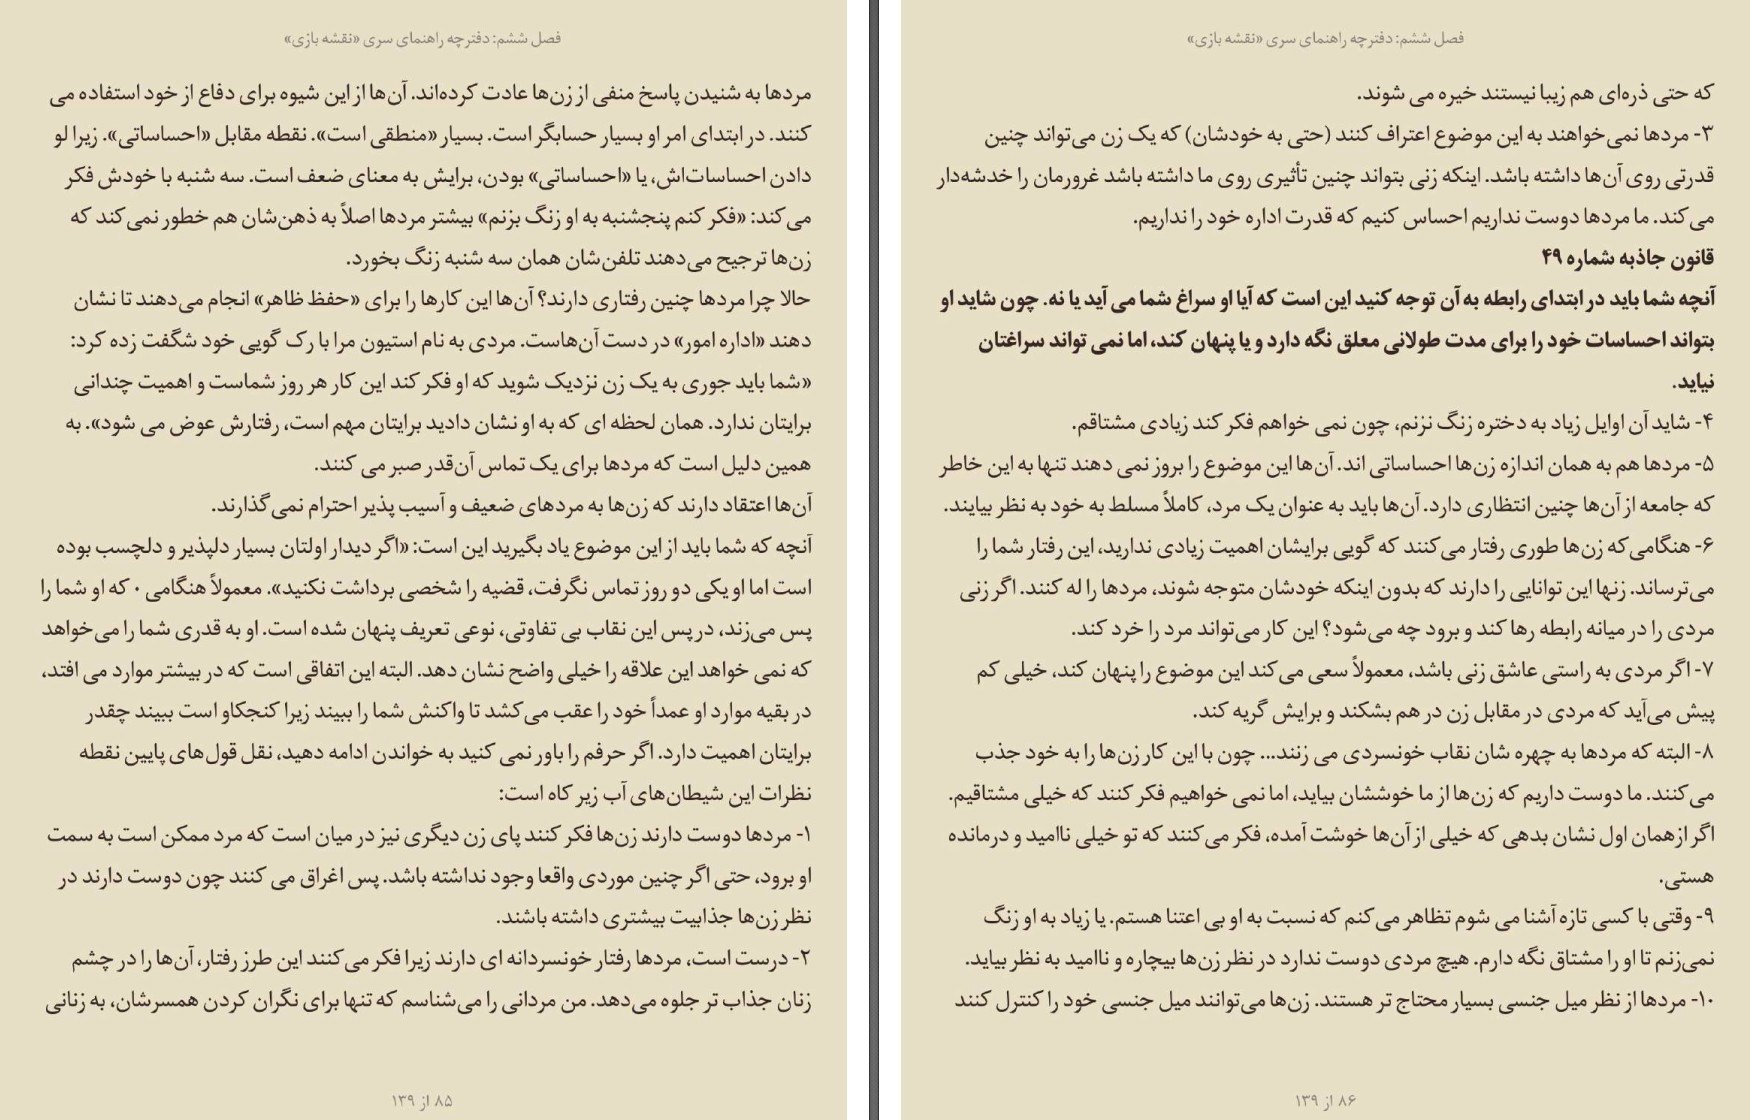 فصل ششم: دفترچه راهنمای سری «نقشه بازی»
مردها به شنیدن پاسخ منفی از زن‌ها عادت کرده‌اند. آن‌ها از این شیوه برای دفاع از خود استفاده می
کنند. در ابتدای امر او بسیار حسابگر است. بسیار «منطقی است». نقطه مقابل «احساساتی». زیرا لو
دادن احساسات‌اش، یا «احساساتی» بودن، برایش به معنای ضعف است. سه شنبه با خودش فکر
می‌کند: «فکر کنم پنجشنبه به او زنگ بزنم» بیشتر مردها اصلاً به ذهن‌شان هم خطور نمی‌کند که
زن‌ها ترجیح می‌دهند تلفن‌شان همان سه شنبه زنگ بخورد.
حالا چرا مردها چنین رفتاری دارند؟ آن‌ها این کارها را برای «حفظ ظاهر» انجام می‌دهند تا نشان
دهند «اداره امور» در دست آن‌هاست. مردی به نام استیون مرا با رک گویی خود شگفت زده کرد:
«شما باید جوری به یک زن نزدیک شوید که او فکر کند این کار هر روز شماست و اهمیت چندانی
برایتان ندارد. همان لحظه ای که به او نشان دادید برایتان مهم است، رفتارش عوض می شود». به
همین دلیل است که مردها برای یک تماس آن‌قدر صبر می کنند.
آن‌ها اعتقاد دارند که زن‌ها به مردهای ضعیف و آسیب پذیر احترام نمی‌گذارند.
آنچه که شما باید از این موضوع یاد بگیرید این است: «اگر دیدار اولتان بسیار دلپذیر و دلچسب بوده
است اما او یکی دو روز تماس نگرفت، قضیه را شخصی برداشت نکنید». معمولاً هنگامی ۰ که او شما را
پس می‌زند، در پس این نقاب بی تفاوتی، نوعی تعریف پنهان شده است. او به قدری شما را می‌خواهد
که نمی خواهد این علاقه را خیلی واضح نشان دهد. البته این اتفاقی است که در بیشتر موارد می افتد،
در بقیه موارد او عمداً خود را عقب می‌کشد تا واکنش شما را ببیند زیرا کنجکاو است ببیند چقدر
برایتان اهمیت دارد. اگر حرفم را باور نمی کنید به خواندن ادامه دهید، نقل قول‌های پایین نقطه
نظرات این شیطان‌های آب زیر کاه است:
۱- مردها دوست دارند زن‌ها فکر کنند پای زن دیگری نیز در میان است که مرد ممکن است به سمت
او برود، حتی اگر چنین موردی واقعا وجود نداشته باشد. پس اغراق می کنند چون دوست دارند در
نظر زن‌ها جذابیت بیشتری داشته باشند.
۲- درست است، مردها رفتار خونسردانه ای دارند زیرا فکر می‌کنند این طرز رفتار، آن‌ها را در چشم
زنان جذاب تر جلوه می‌دهد. من مردانی را می‌شناسم که تنها برای نگران کردن همسرشان، به زنانی
۸۵ از ۱۳۹
فصل ششم: دفترچه راهنمای سری «نقشه بازی»
که حتی ذره‌ای هم زیبا نیستند خیره می شوند.
۳- مردها نمی‌خواهند به این موضوع اعتراف کنند (حتی به خودشان) که یک زن می‌تواند چنین
قدرتی روی آن‌ها داشته باشد. اینکه زنی بتواند چنین تأثیری روی ما داشته باشد غرورمان را خدشه‌دار
می‌کند. ما مردها دوست نداریم احساس کنیم که قدرت اداره خود را نداریم.
قانون جاذبه شماره ۴۹
آنچه شما باید در ابتدای رابطه به آن توجه کنید این است که آیا او سراغ شما می آید یا نه. چون شاید او
بتواند احساسات خود را برای مدت طولانی معلق نگه دارد و یا پنهان کند، اما نمی تواند سراغتان
نیاید.
۴- شاید آن اوایل زیاد به دختره زنگ نزنم، چون نمی خواهم فکر کند زیادی مشتاقم.
۵- مردها هم به همان اندازه زن‌ها احساساتی اند. آن‌ها این موضوع را بروز نمی دهند تنها به این خاطر
که جامعه از آن‌ها چنین انتظاری دارد. آن‌ها باید به عنوان یک مرد، کاملاً مسلط به خود به نظر بیایند.
۶- هنگامی‌که زن‌ها طوری رفتار می‌کنند که گویی برایشان اهمیت زیادی ندارید، این رفتار شما را
می‌ترساند. زنها این توانایی را دارند که بدون اینکه خودشان متوجه شوند، مردها را له کنند. اگر زنی
مردی را در میانه رابطه رها کند و برود چه می‌شود؟ این کار می‌تواند مرد را خرد کند.
۷- اگر مردی به راستی عاشق زنی باشد، معمولاً سعی می‌کند این موضوع را پنهان کند، خیلی کم
پیش می‌آید که مردی در مقابل زن در هم بشکند و برایش گریه کند.
۸- البته که مردها به چهره شان نقاب خونسردی می زنند... چون با این کار زن‌ها را به خود جذب
می‌کنند. ما دوست داریم که زن‌ها از ما خوششان بیاید، اما نمی خواهیم فکر کنند که خیلی مشتاقیم.
اگر ازهمان اول نشان بدهی که خیلی از آن‌ها خوشت آمده، فکر می‌کنند که تو خیلی ناامید و درمانده
هستی.
۹- وقتی با کسی تازه آشنا می شوم تظاهر می‌کنم که نسبت به او بی اعتنا هستم. یا زیاد به او زنگ
نمی‌زنم تا او را مشتاق نگه دارم. هیچ مردی دوست ندارد در نظر زن‌ها بیچاره و ناامید به نظر بیاید.
۱۰- مردها از نظر میل جنسی بسیار محتاج تر هستند. زن‌ها می‌توانند میل جنسی خود را کنترل کنند
۸۶ از ۱۳۹